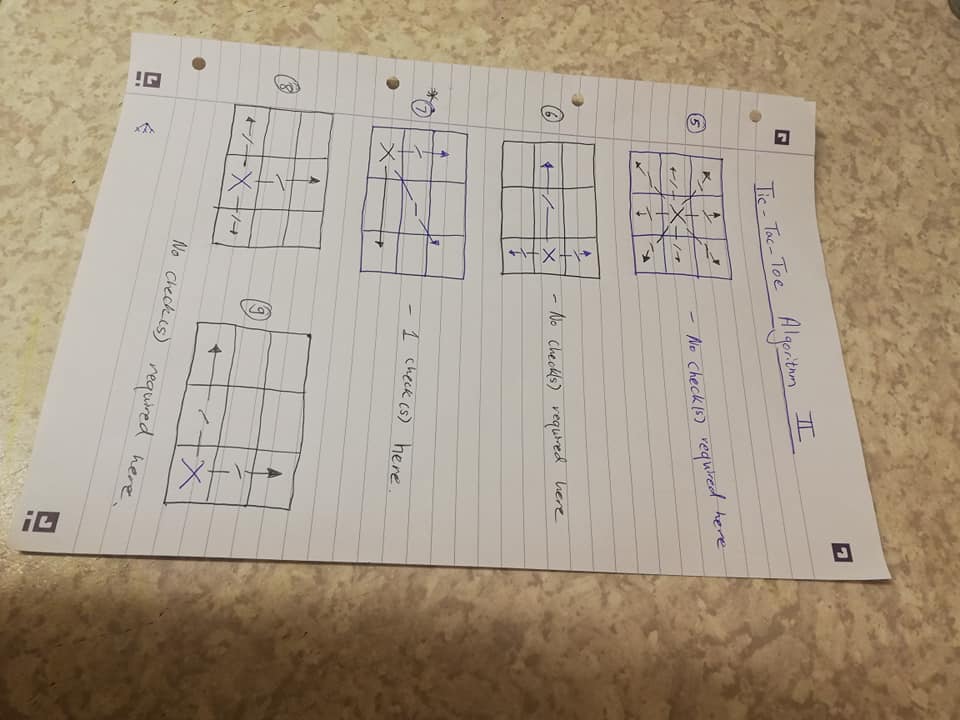 Tic-Tac-Toe Algorithm II
5
X
- No check(s) required here
6
X
- No check(s) required here
*7
X
- 1 check(s) here.
8
X
9
X
No check(s) required here.